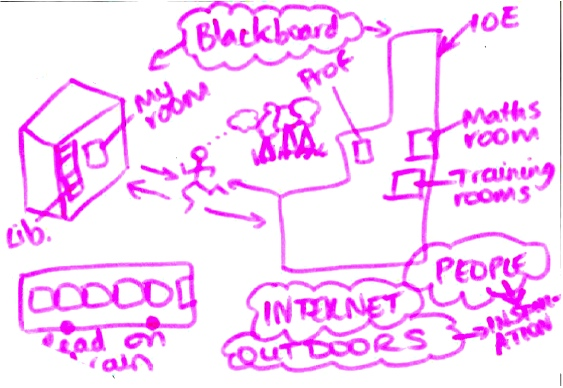 Blackboard
IOE
Prof
My
room
Maths
room
Training
rooms
Lib.
PEOPLE
INTERNET
OUTDOORS
INSPIR-
ATION
Read on
train